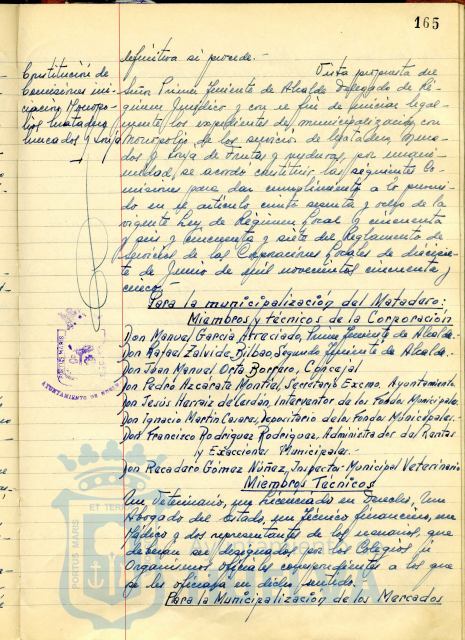 165
definitiva si procede.-
Constitución de
Comisiones ini-
ciación Monopo-
lios Matadero
Mercados y Lonja
Vista propuesta del
Señor Primer Teniente de Alcalde Delegado de Ré-
gimen Jurídico y con el fin de iniciar legal-
mente los expedientes de municipalización con
monopolio de los servicios de Matadero, Merca-
dos y Lonja de Frutas y verduras, por unani-
midad, se acordó constituir las siguientes Co-
misiones para dar cumplimiento a lo preveni-
do en el artículo ciento sesenta y ocho de la
vigente Ley de Régimen Local y cincuenta
y seis y cincuenta y siete del Reglamento de
Servicios de las Corporaciones Locales de diecisie-
te de Junio de mil novecientos cincuenta y
cinco:
Para la municipalización del Matadero:
Miembros y técnicos de la Corporación
Don Manuel García Atreciado, Primer Teniente de Alcalde.-
Don Rafael Zalvide Bilbao, Segundo Teniente de Alcalde.-
Don Juan Manuel Orta Borrero, Concejal
Don Pedro Azcarate Montiel, Secretario Excmo. Ayuntamiento
Don Jesús Herraiz de Lerdón, Interventor de los Fondos Municipales
Don Ignacio Martín Casero, Depositario de los Fondos Municipales.-
Don Francisco Rodríguez Rodríguez, Administrador de Rentas
y Exacciones Municipales.-
Don Recadero Gómez Núñez, Inspector Municipal Veterinario
Miembros Técnicos
Un Veterinario, un Licenciado en Derecho, Un
Abogado del Estado, un Técnico financiero, un
Médico y dos representantes de los usuarios, que
deberán ser designados por los Colegios u
Organismos oficiales correspondientes a los que
se les oficiará en dicho sentido.-
Para la Municipalización de los Mercados
AYUNTAMIENTO DE
PORTUS MARIS
ET TER